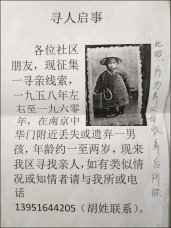 寻人启事
各位社区
朋友，现征集
一寻亲线索，
一九五八年左
右至一九六零
年，在南京中
华门附近丢失或遗弃一男
孩，年龄约一至两岁，现来
我区寻找亲人，如有类似情
况或知情者请与我所或电
话
13951644205（胡姓联系）。
此照片为